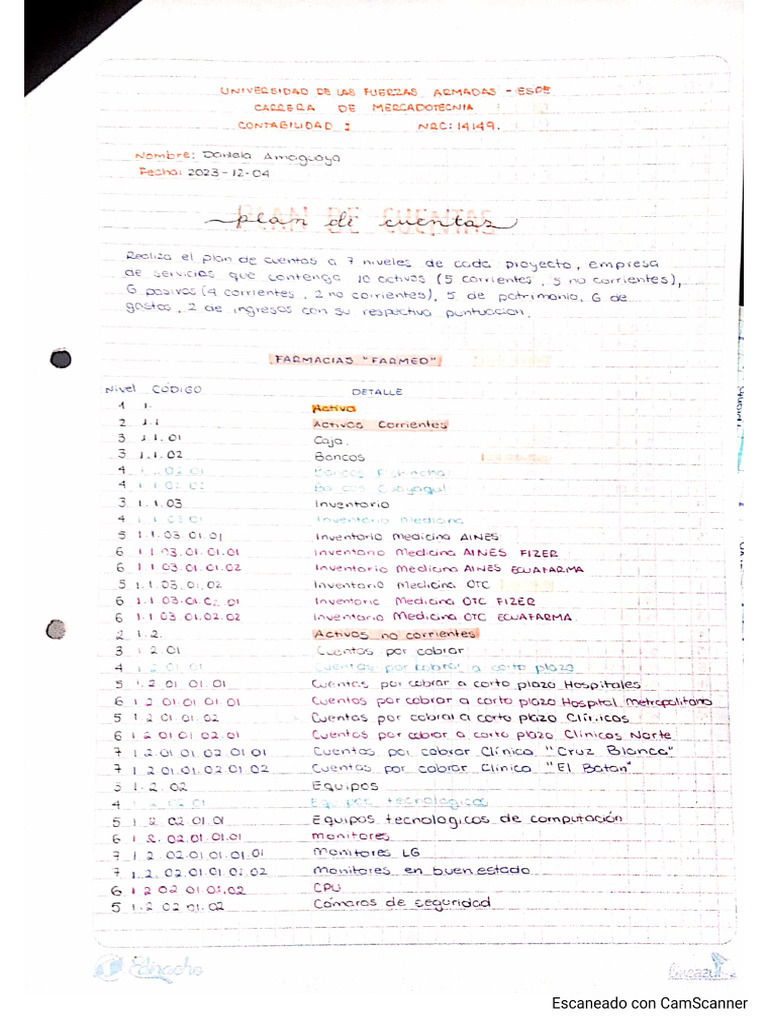 UNIVERSIDAD DE LAS FUERZAS ARMADAS - ESPE
CARRERA DE MERCADOTECNIA
CONTABILIDAD : NRC: 14149.
Nombre: Daniela Amaguaya
Fecha: 2023-12-04
plan de cuentas
Realiza el plan de cuentas a 7 niveles de cada proyecto, empresa
de servicios que contenga 10 activos (5 corrientes, 5 no corrientes),
6 pasivos (4 corrientes, 2 no corrientes), 5 de patrimonio, 6 de
gastos, 2 de ingresos con su respectiva puntuacion.
FARMACIAS "FARMED"
Nivel CÓDIGO DETALLE
1 1. Activo
2 1.1 Activos Corrientes
3 1.1.01 Caja.
3 1.1.02 Bancos
4 1.1.02.01 Bancos Pichincha
4 1.1.02.02 Bancos Guayaquil
3 1.1.03 Inventario
4 1.1.03.01 Inventario Medicina
5 1.1.03.01.01 Inventario Medicina AINES
6 1.1.03.01.01.01 Inventario Medicina AINES FIZER
6 1.1.03.01.01.02 Inventario Medicina AINES ECUAFARMA
5 1.1.03.01.02 Inventario Medicina OTC
6 1.1.03.01.02.01 Inventario Medicina OTC FIZER
6 1.1.03.01.02.02 Inventario Medicina OTC ECUAFARMA
2 1.2. Activos no corrientes
3 1.2.01 Cuentas por cobrar
4 1.2.01.01 Cuentas por cobrar a corto plazo
5 1.2.01.01.01 Cuentas por cobrar a corto plazo Hospitales
6 1.2.01.01.01.01 Cuentas por cobrar a corto plazo Hospital Metropolitano
5 1.2.01.01.02 Cuentas por cobrar a corto plazo Clínicas
6 1.2.01.01.02.01 Cuentas por cobrar a corto plazo Clínicas Norte
7 1.2.01.01.02.01.01 Cuentas por cobrar Clínica "Cruz Blanca"
7 1.2.01.01.02.01.02 Cuentas por cobrar Clínica "El Batan"
3 1.2.02 Equipos
4 1.2.02.01 Equipos tecnologicos
5 1.2.02.01.01 Equipos tecnologicos de computación
6 1.2.02.01.01.01 Monitores
7 1.2.02.01.01.01.01 Monitores LG
7 1.2.02.01.01.01.02 Monitores en buen estado
6 1.2.02.01.01.02 CPU
5 1.2.02.01.02 Cámaras de seguridad
Ednacho
Escaneado con CamScanner